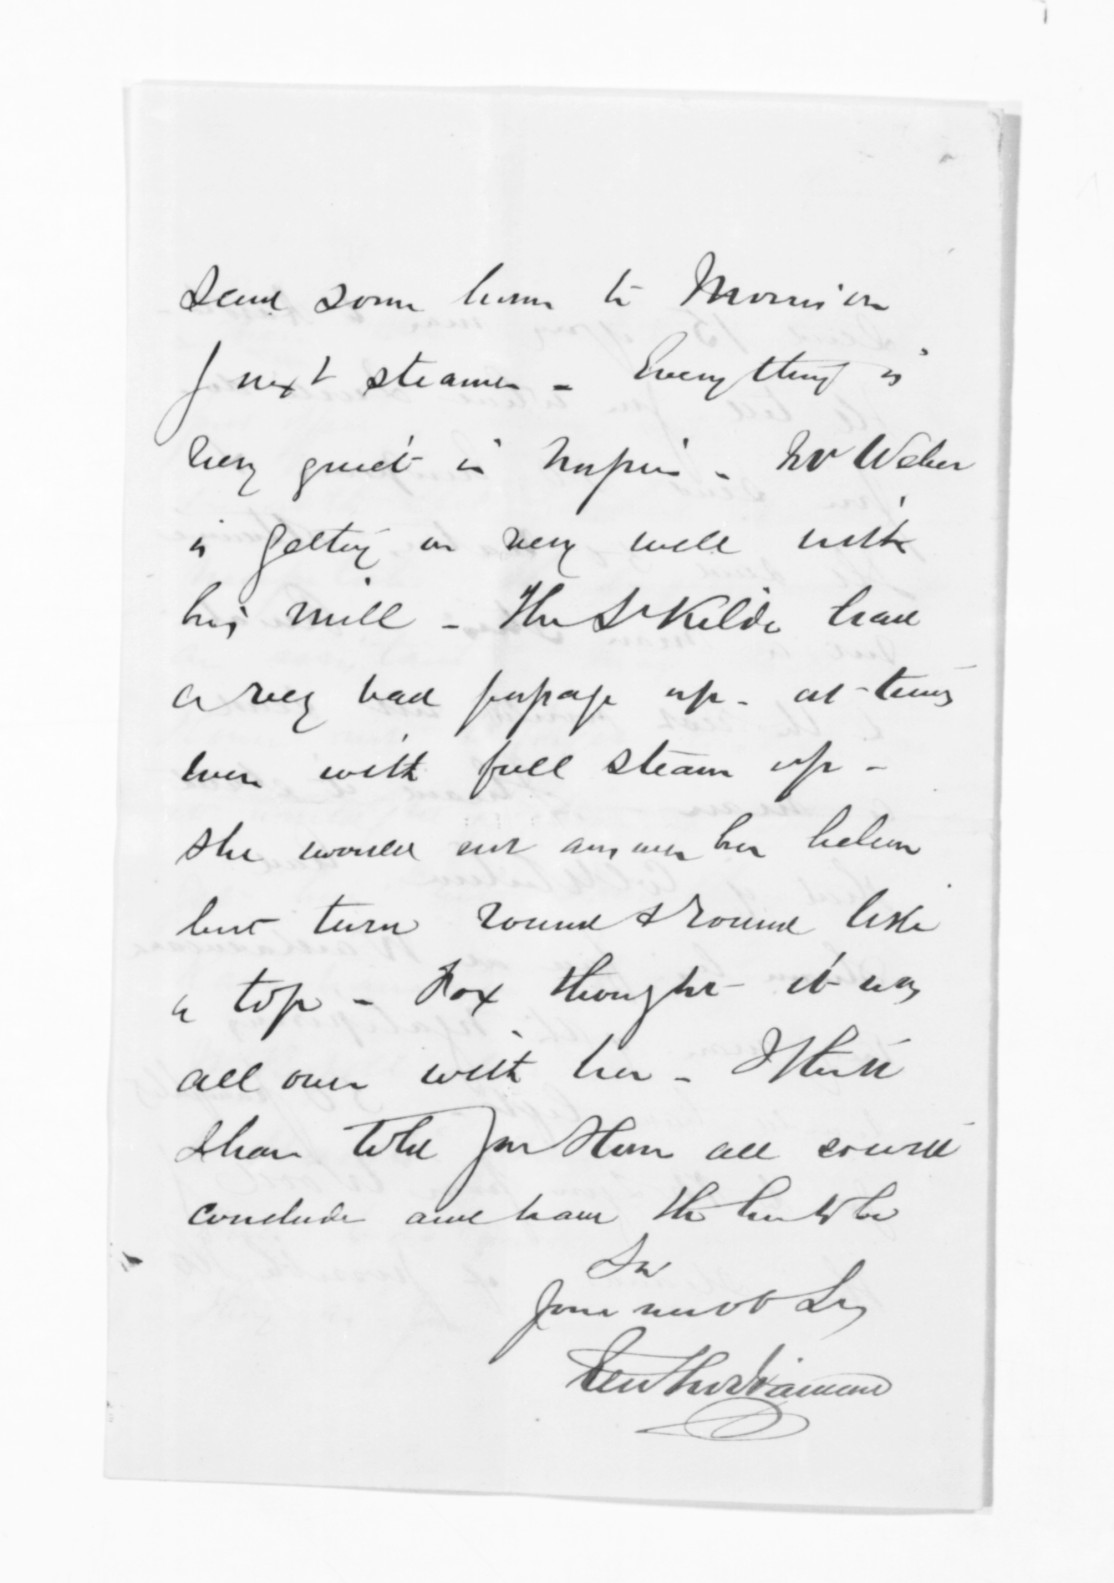 send some home to Morrison
P next steamer - Everything is
very quiet in Napier - Mr Weber
is getting on very well with
his mill - The St Kilda had
a very bad passage up - at times
even with full steam up -
she would not answer her helm
but turn round & round like
a top - Fox thought it was
all over with her - I think
I have told you them all so will
conclude and have the honor to be
Sir
Your most Obt Sv